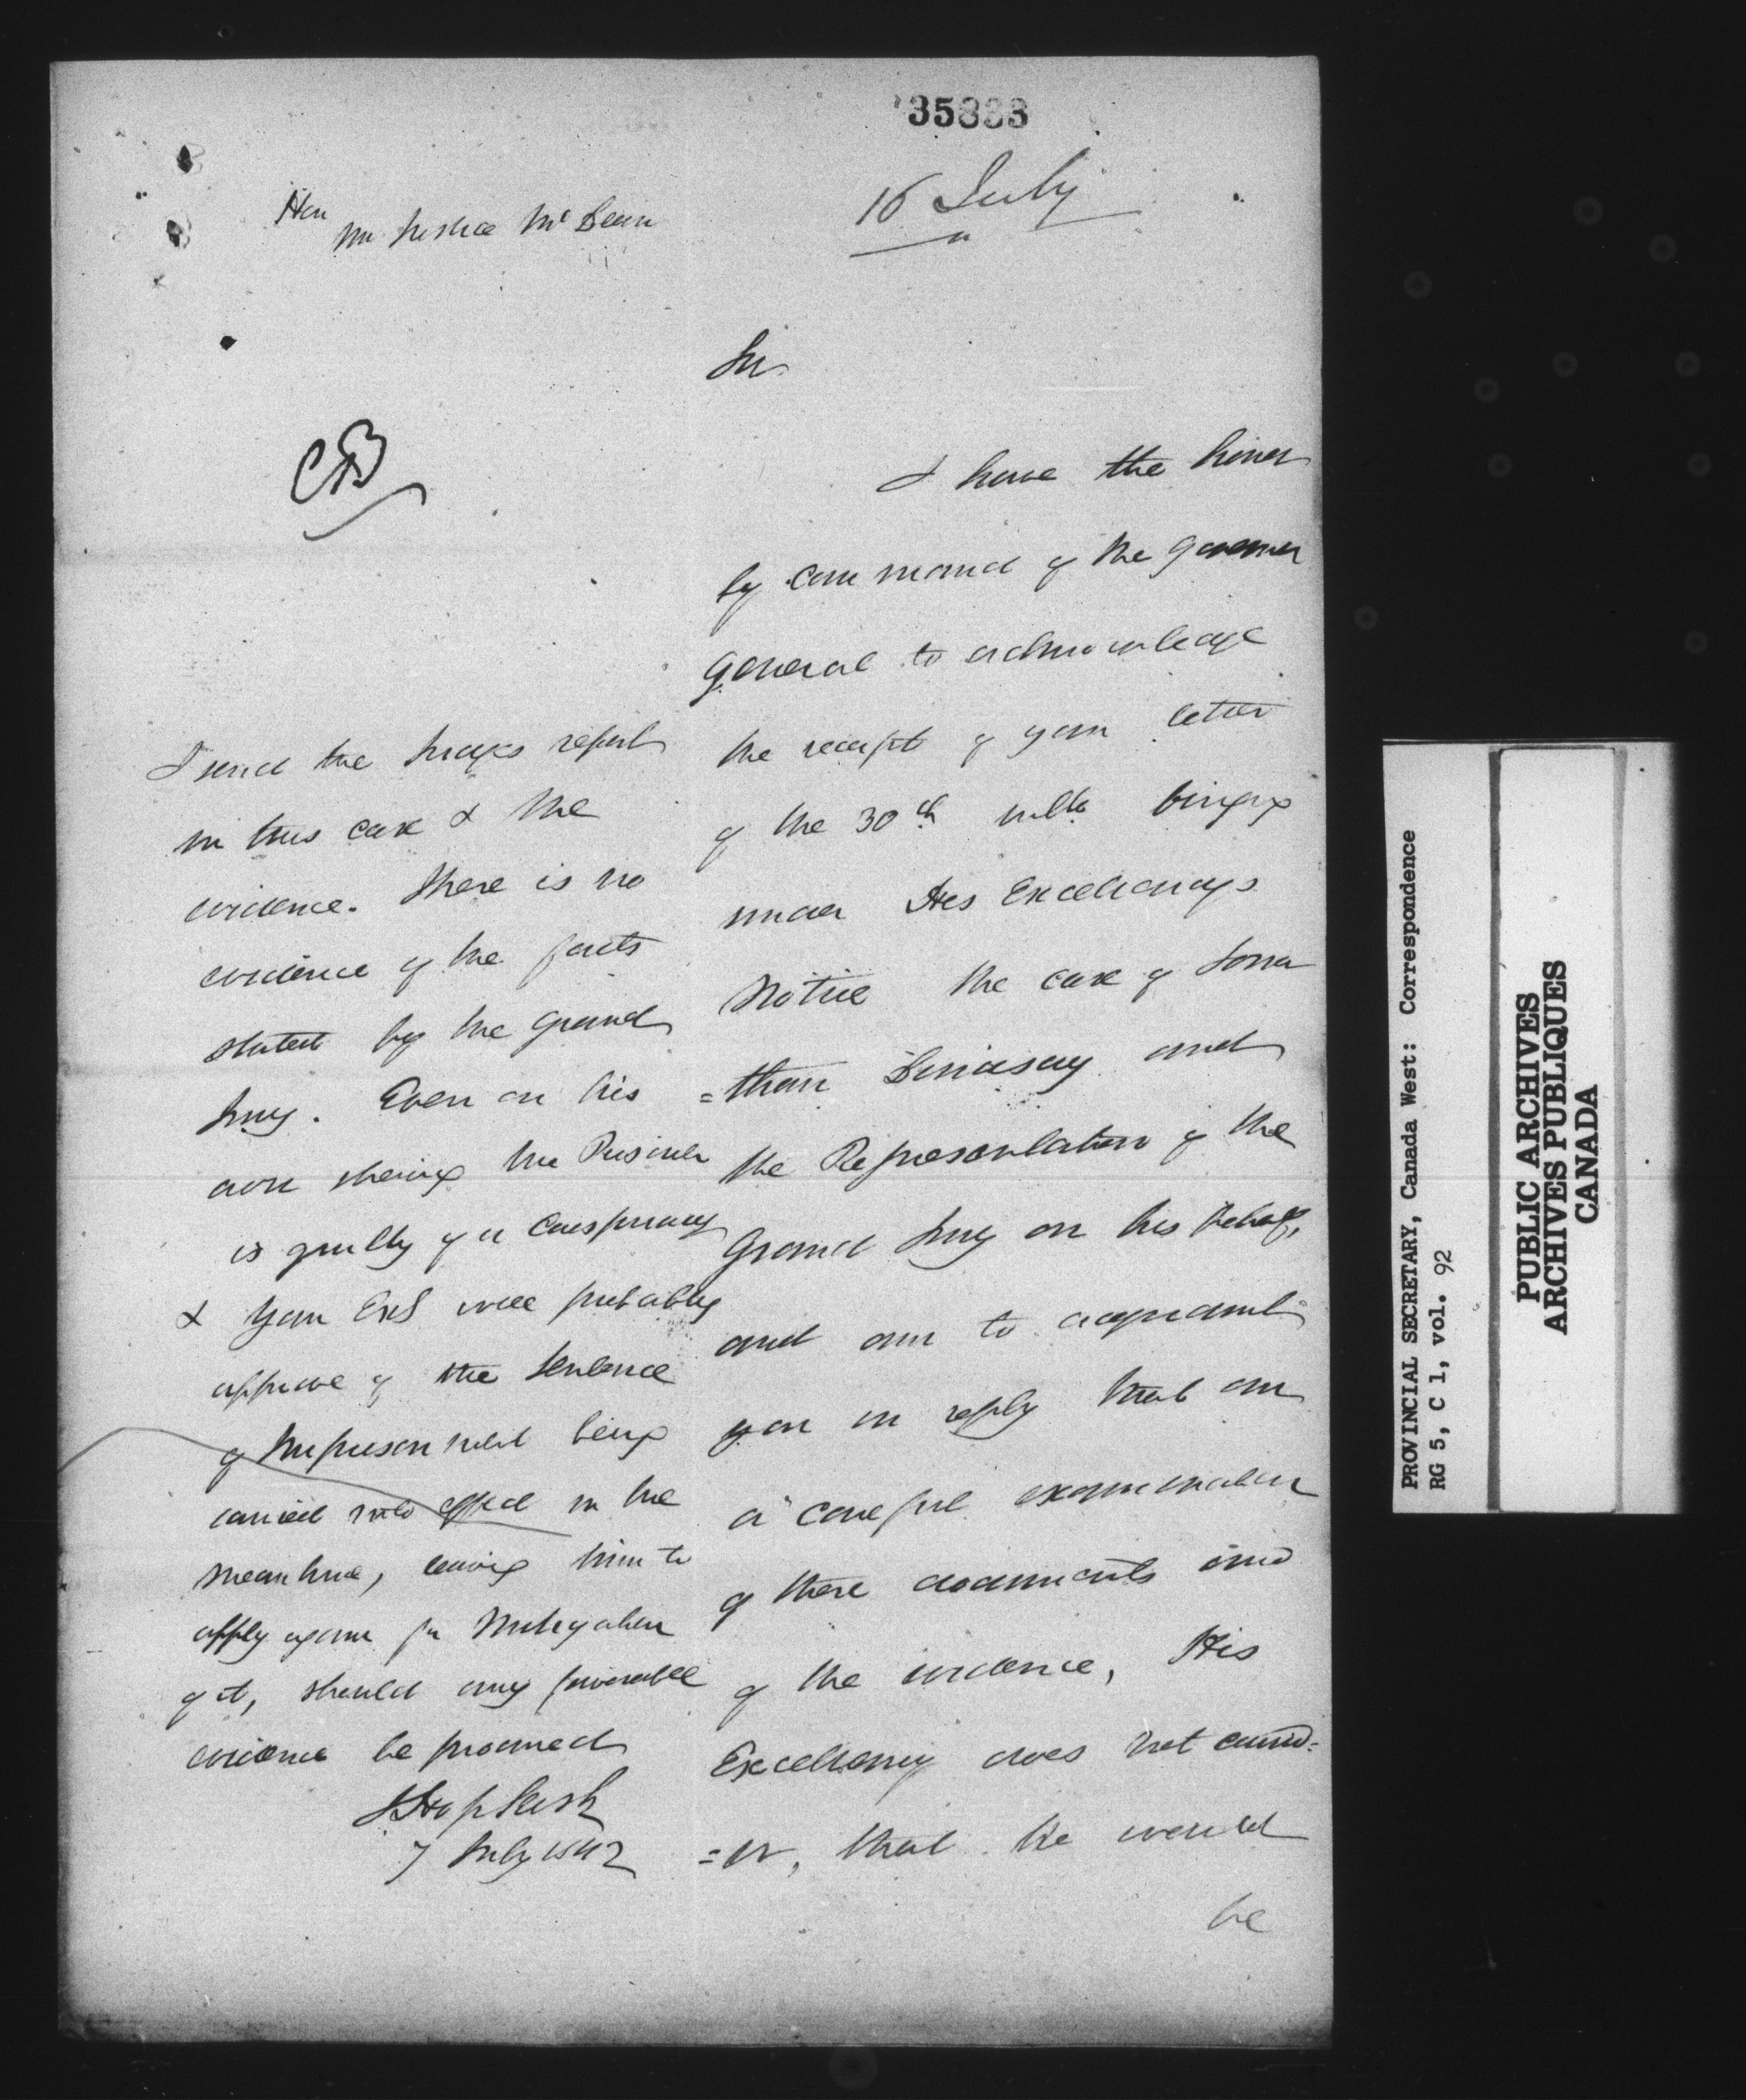 35883
16 July
Hon
Mr Justice McLean
Sir
CB
I have the honor
by command of the Governor
General to acknowledge
the receipt of your letter
of the 30th ulto bringing
under His Excellency's
Notice the case of Jona
=than Lindsay and
the Representation of the
Grand Jury on his behalf,
and am to acquaint
you in reply that on
a careful examination
of these documents and
of the evidence, His
Excellency does not consid=
=er, that he would
be
I send the Judges report
in this case & the
evidence. There is no
evidence of the facts
stated by the Grand
Jury. Even on his
own shewing the Prisoner
is guilty of a Conspiracy
& Your Exc will probably
approve of the sentence
of Imprisonment being
carried into effect in the
meantime, leaving him to
apply again for Mitigation
of it, should any favorable
evidence be procured
7 July 1842
PROVINCIAL SECRETARY, Canada West: Correspondence
RG 5, C 1, vol. 92
PUBLIC ARCHIVES
ARCHIVES PUBLIQUES
CANADA